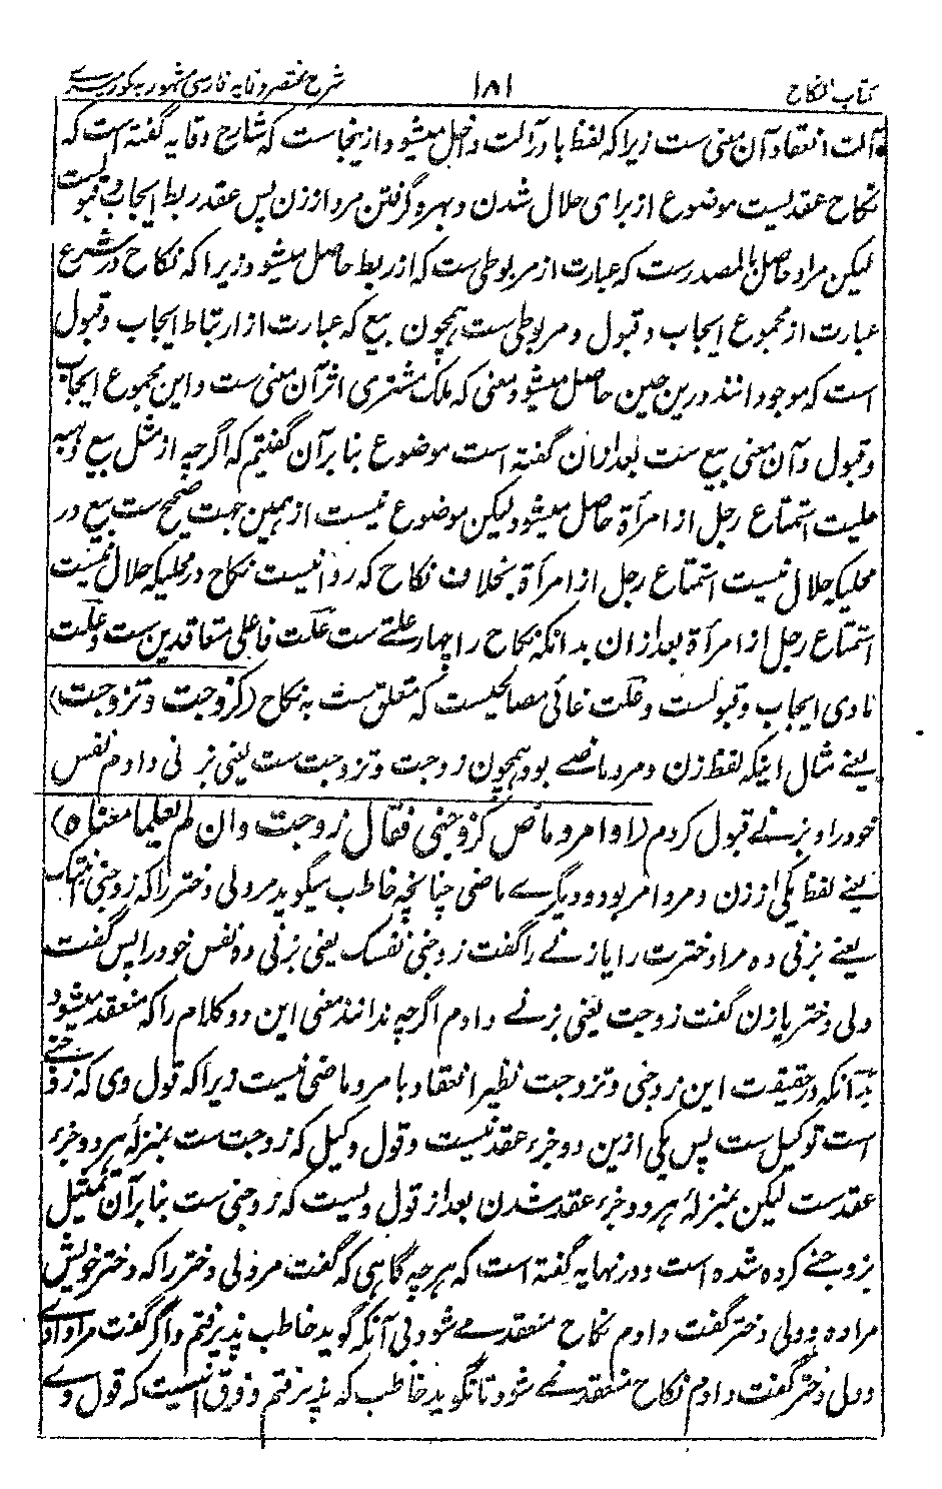 کتاب النکاح ۱۸۱ شرح مختصر وقایه فارسی مشهور به کور میرے
آلت انعقاد آن معنی ست زیرا که لفظ با در آلت داخل میشود ازینجاست که شارح وقایه گفته است که
نکاح عقدیست موضوع از برای حلال شدن و بهره گرفتن مرد از زن پس عقد ربط ایجاب و قبولست
لیکن مراد حاصل بالمصدرست که عبارت از مربوطی ست که از ربط حاصل میشود زیرا که نکاح در شرع
عبارت از مجموع ایجاب و قبول و مربوطی ست همچون بیع که عبارت از ارتباط ایجاب و قبول
است که موجود اند درین حین حاصل میشود معنی که ملک مشتری اثر آن معنی ست و این مجموع ایجاب
و قبول و آن معنی بیع ست بعد ازان گفته است موضوع بنا بر آن گفتیم که اگرچه از مثل بیع و هبه
حلیت استمتاع رجل از امرأة حاصل میشود لیکن موضوع نیست از همین جهت صحیح ست بیع در
محلیکه حلال نیست استمتاع رجل از امرأة بخلاف نکاح که روا نیست نکاح در محلیکه حلال نیست
استمتاع رجل از امرأة بعد ازان بدانکه نکاح را چهار علتے ست علت فاعلی متعاقدین ست و علت
مادی ایجاب و قبولست و علت غائی مصالحیست که متعلق ست به نکاح (کزوجت و تزوجت)
یعنے مثال اینکه لفظ زن و مرد ماضے بود همچون زوجت و تزوجت ست یعنی بزنی دادم نفس
خود را و بزنے قبول کردم (او امر و ماض کزوجنی فقال زوجت وان لم یعلما معناه)
یعنے لفظ یکی از زن و مرد امر بود و دیگرے ماضی چنانچه خاطب میگوید مر ولی دختر را که زوجنی ابنتک
یعنے بزنی ده مرا دخترت را یا زنے را گفت زوجنی نفسک یعنی بزنی ده نفس خود را پس گفت
ولی دختر یا زن گفت زوجت یعنی بزنے دادم اگرچه ندانند معنی این دو کلام را که منعقد میشود
بدانکه در حقیقت این زوجنی و تزوجت نظیر انعقاد با مر و ماضی نیست زیرا که قول وی که زوجنے
است توکیل ست پس یکی ازین دو جزء عقد نیست و قول وکیل که زوجت ست بمنزلۀ هر دو جزء
عقد ست لیکن بمنزلۀ هر دو جزء عقد شدن بعد از قول ویست که زوجنی ست بنا بر آن تمثیل
بزوجنے کرده شده است و در نهایه گفته است که هرچه گاهی که گفت مر ولی دختر را که دختر خویش
مرا ده و ولی دختر گفت دادم نکاح منعقد مے شود بی آنکه گوید خاطب پذیرفتم و اگر گفت مرا دادے
و ولی دختر گفت دادم نکاح منعقد نمے شود تا نگوید خاطب که پذیرفتم و فرق اینست که قول وے